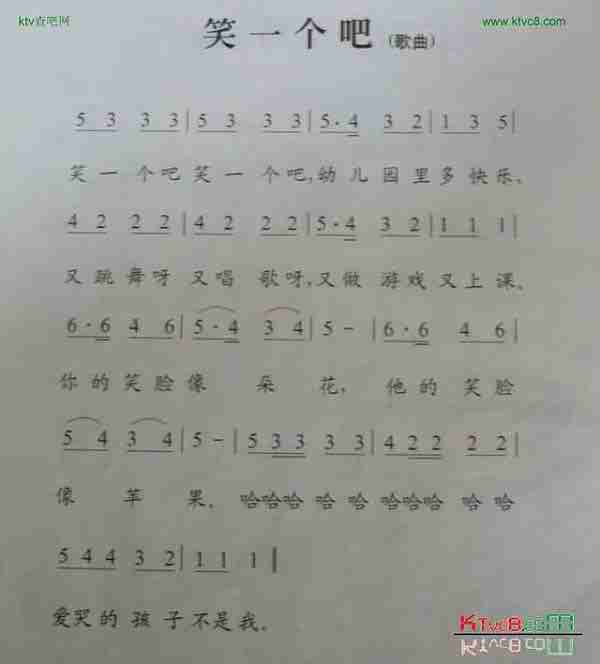 ktv查吧网
www.ktvc8.com
笑一个吧 (歌曲)
5 3 3 3 | 5 3 3 3 | 5·4 3 2 | 1 3 5 |
笑一个吧笑一个吧,幼儿园里多快乐。
4 2 2 2 | 4 2 2 2 | 5·4 3 2 | 1 1 1 |
又跳舞呀又唱歌呀,又做游戏又上课。
6·6 4 6 | 5·4 3 4 | 5 - | 6·6 4 6 |
你的笑脸像朵花,他的笑脸
5 4 3 4 | 5 - | 5 3 3 3 3 | 4 2 2 2 2 |
像苹果。哈哈哈哈哈哈哈哈哈哈
5 4 4 3 2 | 1 1 1 ‖
爱哭的孩子不是我。
KTVC8.COM